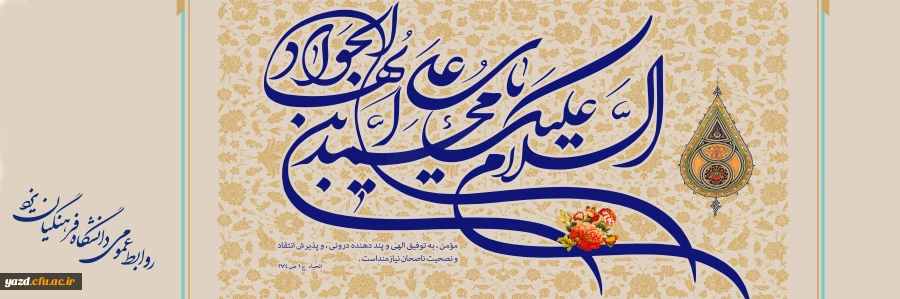 السلام علیک یا محمد بن علی ایها الجواد
مؤمن ، به توفیق الهی و پند دهنده درونی ، و پذیرش انتقاد
و نصحیت ناصحان نیازمنداست .
روابط عمومی دانشگاه فرهنگیان یزد
yazd.cfu.ac.ir